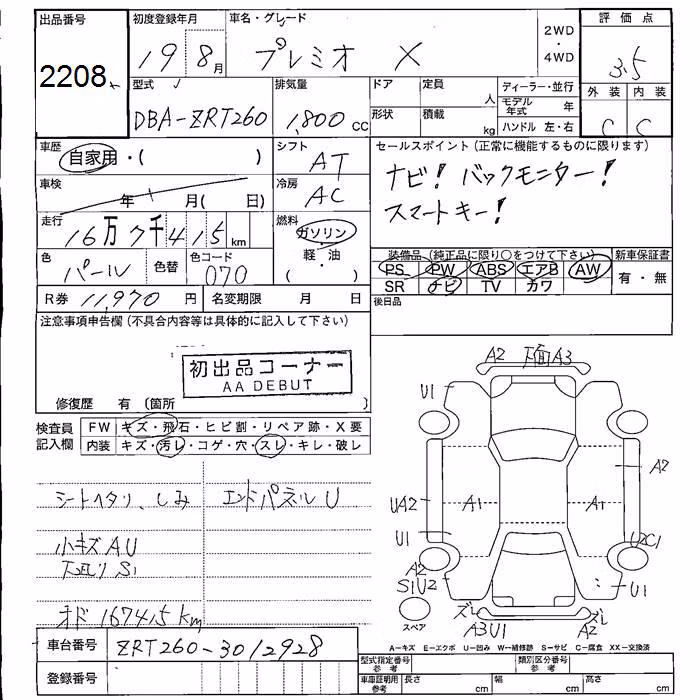 出品番号 初度登録年月 車名・グレード 2WD・4WD 評価点
2208 19 8月 プレミオ X 3.5
型式 排気量 ドア 定員 人 ディーラー・並行 外装 内装
DBA-ZRT260 1,800cc 形状 積載 kg モデル年式 年 C C
ハンドル 左・右
車歴 自家用・( ) シフト AT セールスポイント(正常に機能するものに限ります)
車検 年 月( 日) 冷房 AC ナビ! バックモニター!
スマートキー!
走行 16万7千415km 燃料 ガソリン・軽・油 ( )
色 パール 色替 色コード 070 装備品(純正品に限り○をつけて下さい) 新車保証書
PS PW ABS エアB AW 有・無
SR ナビ TV カワ
R券 11,970円 名変期限 月 日 後日品
注意事項申告欄(不具合内容等は具体的に記入して下さい)
初出品コーナー
AA DEBUT
修復歴 有(箇所 )
検査員記入欄 FW キズ・飛石・ヒビ割・リペア跡・X要
内装 キズ・汚レ・コゲ・穴・スレ・キレ・破レ
シートヘタリ、しみ エンドパネルU
小キズAU
下廻りS1
オド167415km
A2 下面A3
U1
A2
UA2 A1 A1
U1 U2C1
A2
S1U2 U1
スペア ズレ ズレ
A3U1 A2
A-キズ E-エクボ U-凹み W-補修跡 S-サビ C-腐食 XX-交換済
車台番号 ZRT260-3012928
型式指定番号 参考 類別区分番号 参考
登録番号 車庫証明用 参考 長さ cm 幅 cm 高さ cm